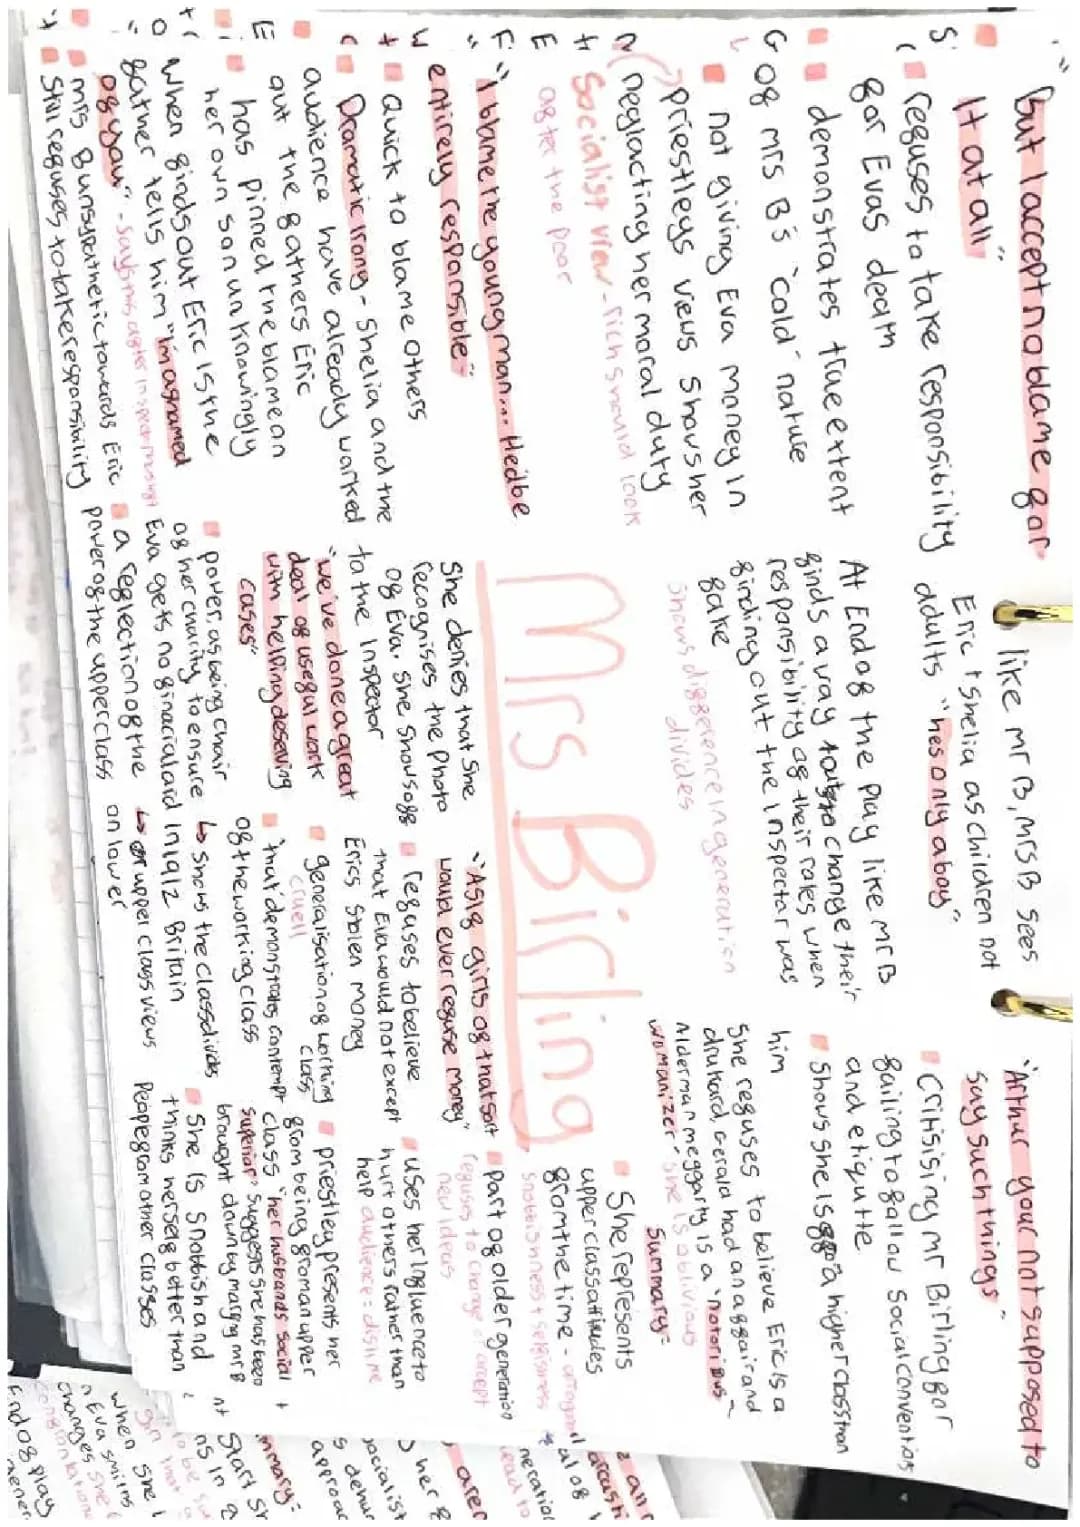 "But I accept no blame gor
It at all"
reguses to take responsibility
gor Evas death
demonstrates true extent
og mrs B's 'cold' nature
not giving Eva money in
priestleys veiws shows her
neglacting her moral duty
Socialist view - rich should look
agter the poor
"I blame the young man... Hedbe
entirely responsible"
quick to blame others
Dramatic Irony - Shelia and the
audience have already worked
out the gathers Eric
has pinned the blame on
her own son unknowingly
When ginds out Eric is the
gather tells him "Im ashamed
og you" - says this agter Inspector
mrs B unsypathetic towards Eric
Still reguses to take responsibility
like mr B, mrs B sees
Eric + Shelia as children not
addults "hes only a boy"
At End og the play like mr B
ginds a way to change their
responsibility og their roles when
ginding out the inspector was
gake
shows diggerence in generation
divides
Mrs Birling
She denies that she
recognises the photo
og Eva. She shows ogg
to the Inspector
"we've done a great
deal og usegul work
with helping deserving
cases"
power, as being chair
og her charity to ensure
Eva gets no ginacial aid in 1912 Britain
a reglection og the
power og the upper class
↳ shows the class divides
↳ or upper class views
on lower
"As ig girls og that sort
would ever reguse money"
reguses to believe
that Eva would not except
Erics stolen money
generalisation og working
class
cruell
'that' demonstrates contempt
og the working class
"Arthur your not supposed to
say such things"
Critisising mr Birling gor
gailing to gollow social conventions
and etiqutte
Shows she is og a higher class than
him
She reguses to believe Eric is a
drunkard, Gerald had an aggair and
Alderman meggarty is a "notorious
womanizer" she is oblivious
Summary:
She represents
upper class attitudes
grom the time - arrogant
snobbishness + selgisness
part og older generation
reguses to change / accept
new ideas
uses her ingluence to
hurt others rather than
help audience = dislike
priestley presents her
grom being grom an upper
class "her husbands social
superior" suggests she has been
brought down by marrying mr B
She is snobbish and
thinks herselg better than
people grom other classes
mmary:
Start
when she
Eva smiths
changes she
End og play